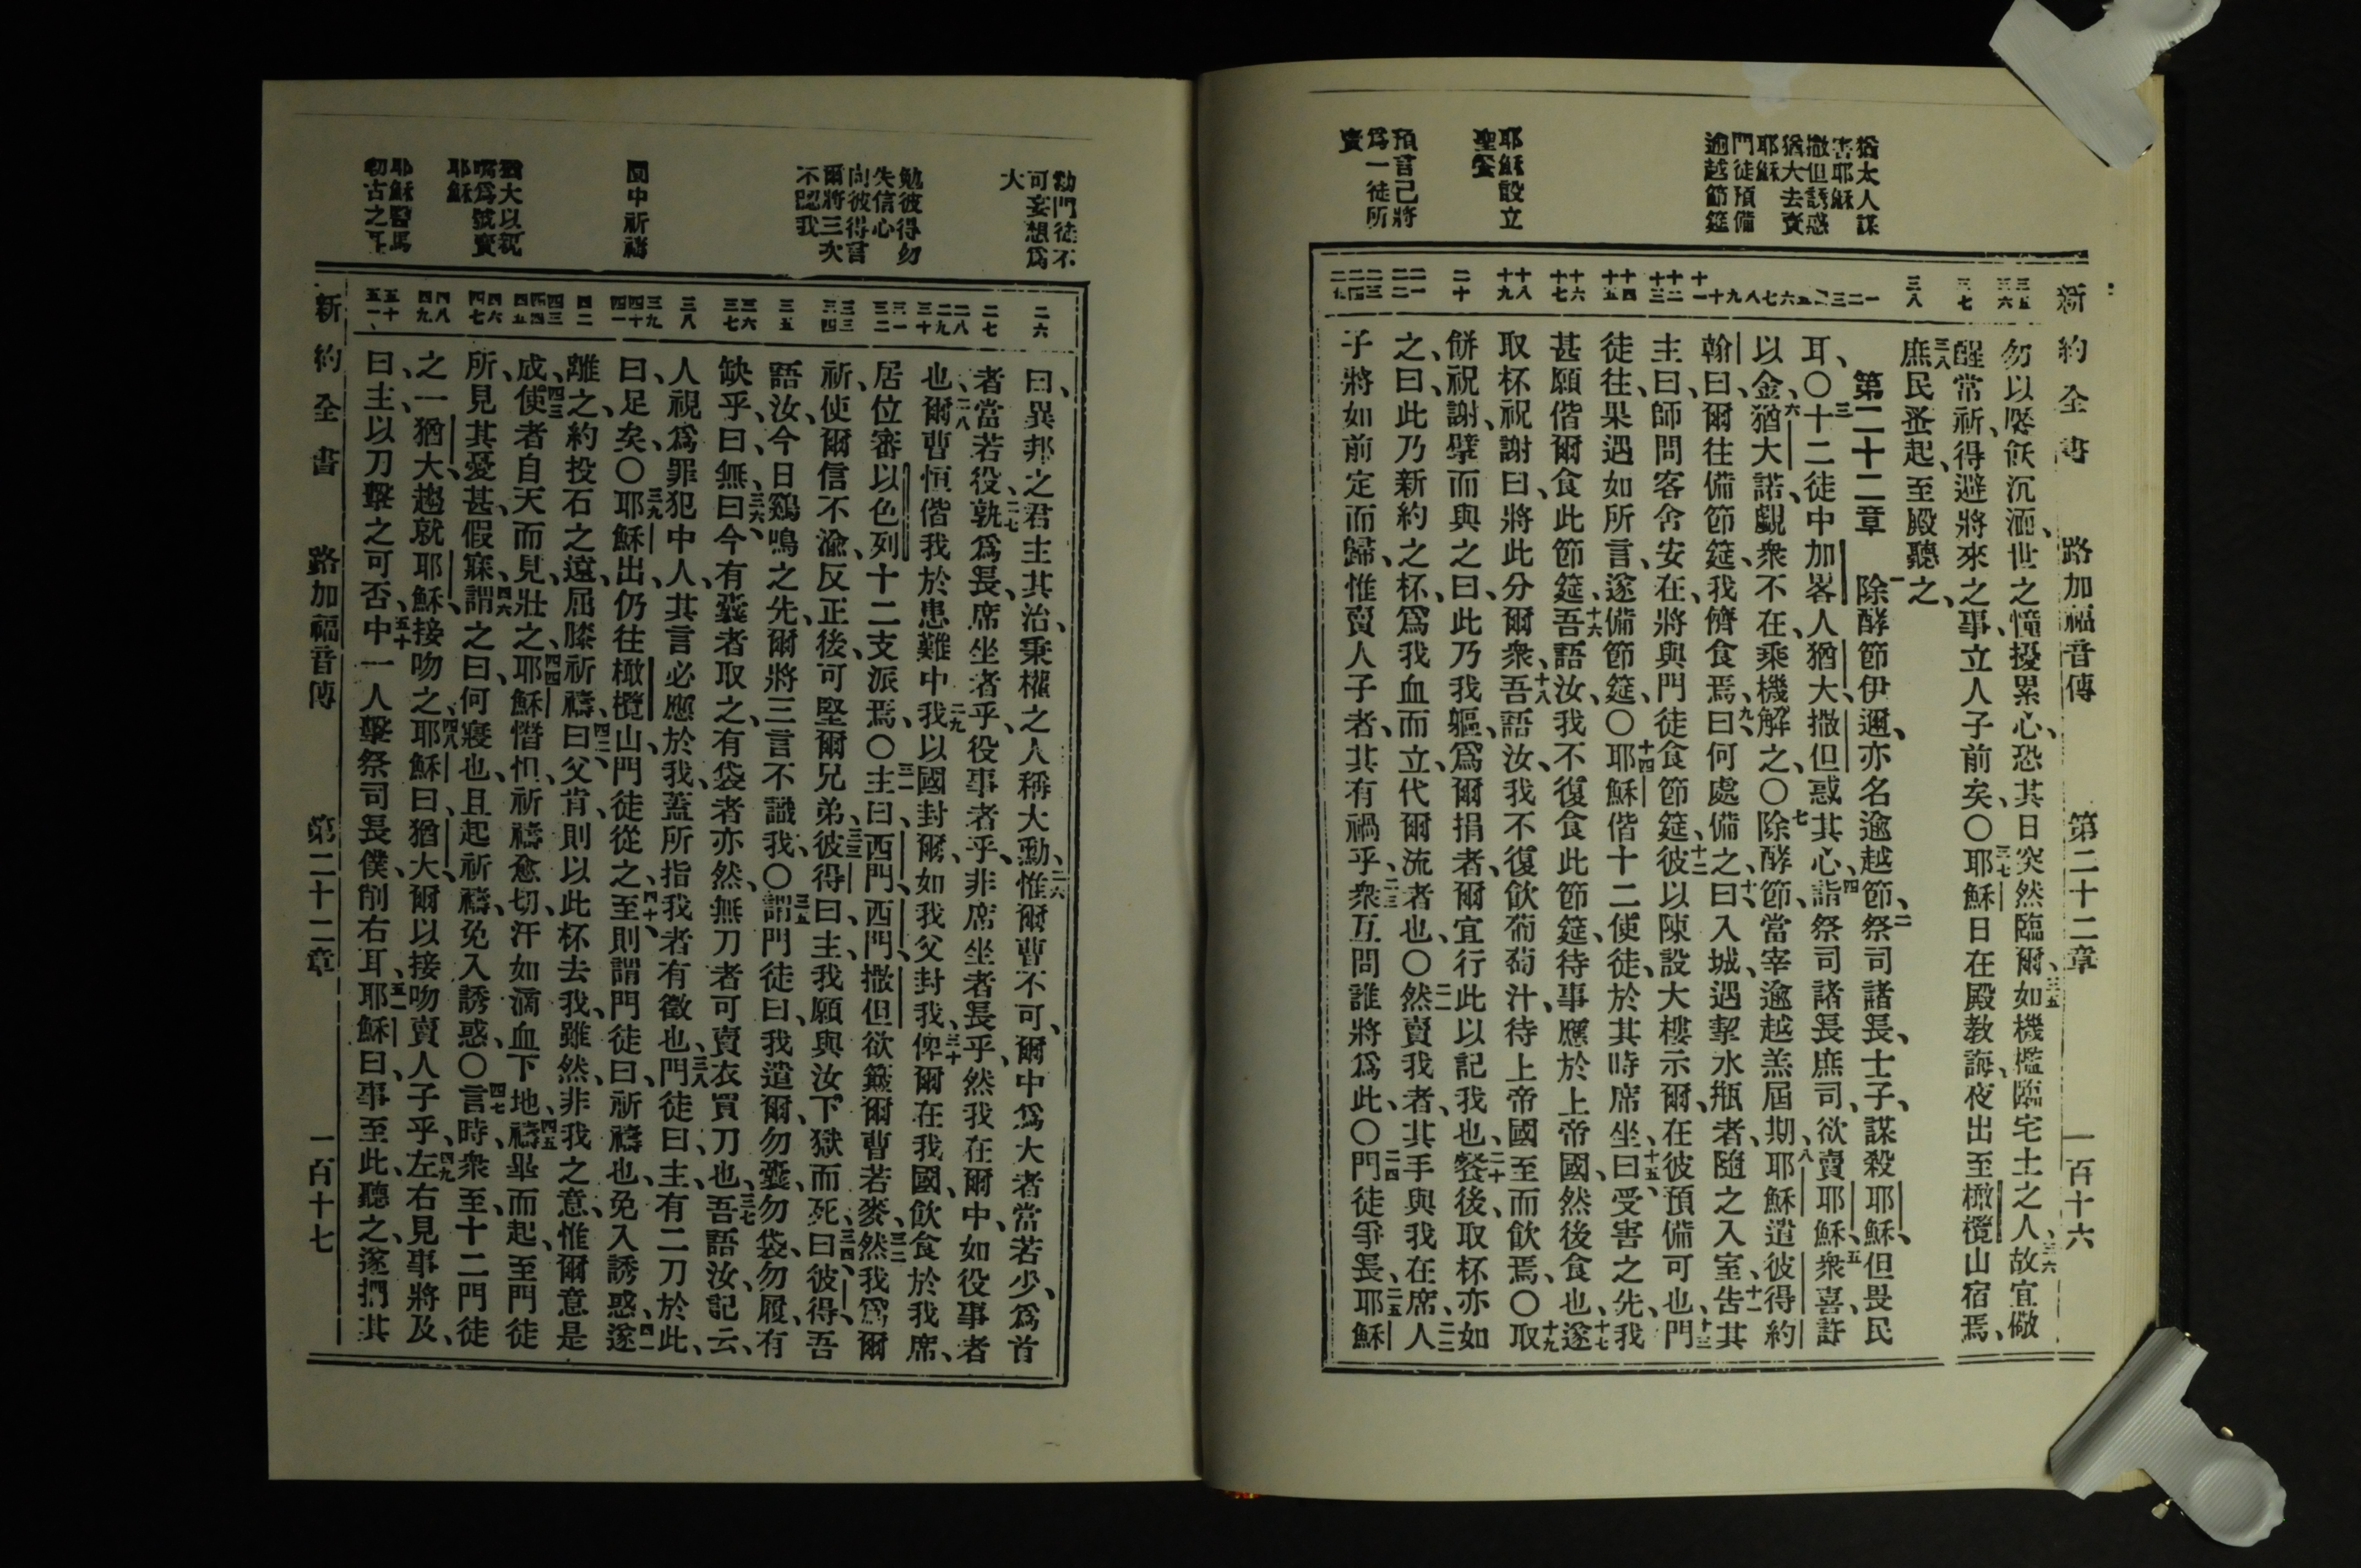 新約全書 路加福音傳 第二十二章 一百十六
猶太人謀
害耶穌
撒但誘惑
猶大去賣
耶穌
門徒預備
逾越節筵
耶穌設立
聖餐
預言己將
爲一徒所
賣
三五
三六
三七
三八
一
二
三
四
五
六
七
八
九
十
十一
十二
十三
十四
十五
十六
十七
十八
十九
二十
二一
二二
二三
二四
二五
勿以饜飫沉湎、世之憧擾累心、恐其日突然臨爾、三五如機檻臨宅土之人、三六故宜儆
醒常祈、得避將來之事、立人子前矣、〇三七耶穌日在殿教誨、夜出至橄欖山宿焉、
三八庶民蚤起、至殿聽之、
第二十二章 一除酵節伊邇、亦名逾越節、二祭司諸長、士子、謀殺耶穌、但畏民
耳、〇三十二徒中加畧人猶大、撒但惑其心、四詣祭司諸長庶司、欲賣耶穌、五衆喜、許
以金、六猶大諾、覷衆不在、乘機解之、〇七除酵節、當宰逾越羔屆期、八耶穌遣彼得約
翰曰、爾往備節筵、我儕食焉、九曰、何處備之、十曰、入城、遇挈水瓶者、隨之入室、十一告其
主曰、師問客舍安在、將與門徒食節筵、十二彼以陳設大樓示爾、在彼預備可也、十三門
徒往、果遇如所言、遂備節筵、〇十四耶穌偕十二使徒、於其時席坐、十五曰、受害之先、我
甚願偕爾食此節筵、十六吾語汝、我不復食此節筵、待事應於上帝國、然後食也、十七遂
取杯祝謝曰、將此分爾衆、十八吾語汝、我不復飲葡萄汁、待上帝國至而飲焉、〇十九取
餅祝謝、擘而與之曰、此乃我軀、爲爾捐者、爾宜行此以記我也、二十餐後、取杯亦如
之、曰、此乃新約之杯、爲我血而立、代爾流者也、〇二一然賣我者、其手與我在席、二二人
子將如前定而歸、惟賣人子者、其有禍乎、二三衆互問誰將爲此、〇二四門徒爭長、二五耶穌
勸門徒不
可妄想爲
大
勉彼得勿
失信心
向彼得言
爾將三次
不認我
園中祈禱
猶大以親
嘴爲號賣
耶穌
耶穌醫馬
勒古之耳
二六
二七
二八
二九
三十
三一
三二
三三
三四
三五
三六
三七
三八
三九
四十
四一
四二
四三
四四
四五
四六
四七
四八
四九
五十
五一
曰、異邦之君主其治、秉權之人稱大勳、二六惟爾曹不可、爾中爲大者當若少、爲首
者當若役、二七孰爲長、席坐者乎、役事者乎、非席坐者長乎、然我在爾中、如役事者
也、二八爾曹恒偕我於患難中、二九我以國封爾、如我父封我、三十俾爾在我國、飲食於我席、
居位審以色列十二支派焉、〇三一主曰、西門、西門、撒但欲簸爾曹若麥、三二然我爲爾
祈、使爾信不渝、反正後、可堅爾兄弟、三三彼得曰、主、我願與汝下獄而死、三四曰、彼得、吾
語汝、今日鷄鳴之先、爾將三言不識我、〇三五謂門徒曰、我遣爾、勿囊、勿袋、勿履、有
缺乎、曰、無、三六曰、今有囊者取之、有袋者亦然、無刀者可賣衣買刀也、三七吾語汝、記云、
人視爲罪犯中人、其言必應於我、蓋所指我者有徵也、三八門徒曰、主、有二刀於此、
曰、足矣、〇三九耶穌出、仍往橄欖山、門徒從之、四十至則謂門徒曰、祈禱也、免入誘惑、四一遂
離之、約投石之遠、屈膝祈禱、四二曰、父肯、則以此杯去我、雖然、非我之意、惟爾意是
成、四三使者自天而見、壯之、四四耶穌憯怛、祈禱愈切、汗如滴血下地、四五禱畢而起、至門徒
所、見其憂甚假寐、四六謂之曰、何寢也、且起祈禱、免入誘惑、〇四七言時、衆至、十二門徒
之一猶大、趨就耶穌、接吻之、四八耶穌曰、猶大、爾以接吻賣人子乎、四九左右見事將及、
曰、主、以刀擊之可否、五十中一人擊祭司長僕、削右耳、五一耶穌曰、事至此、聽之、遂捫其
新約全書 路加福音傳 第二十二章 一百十七